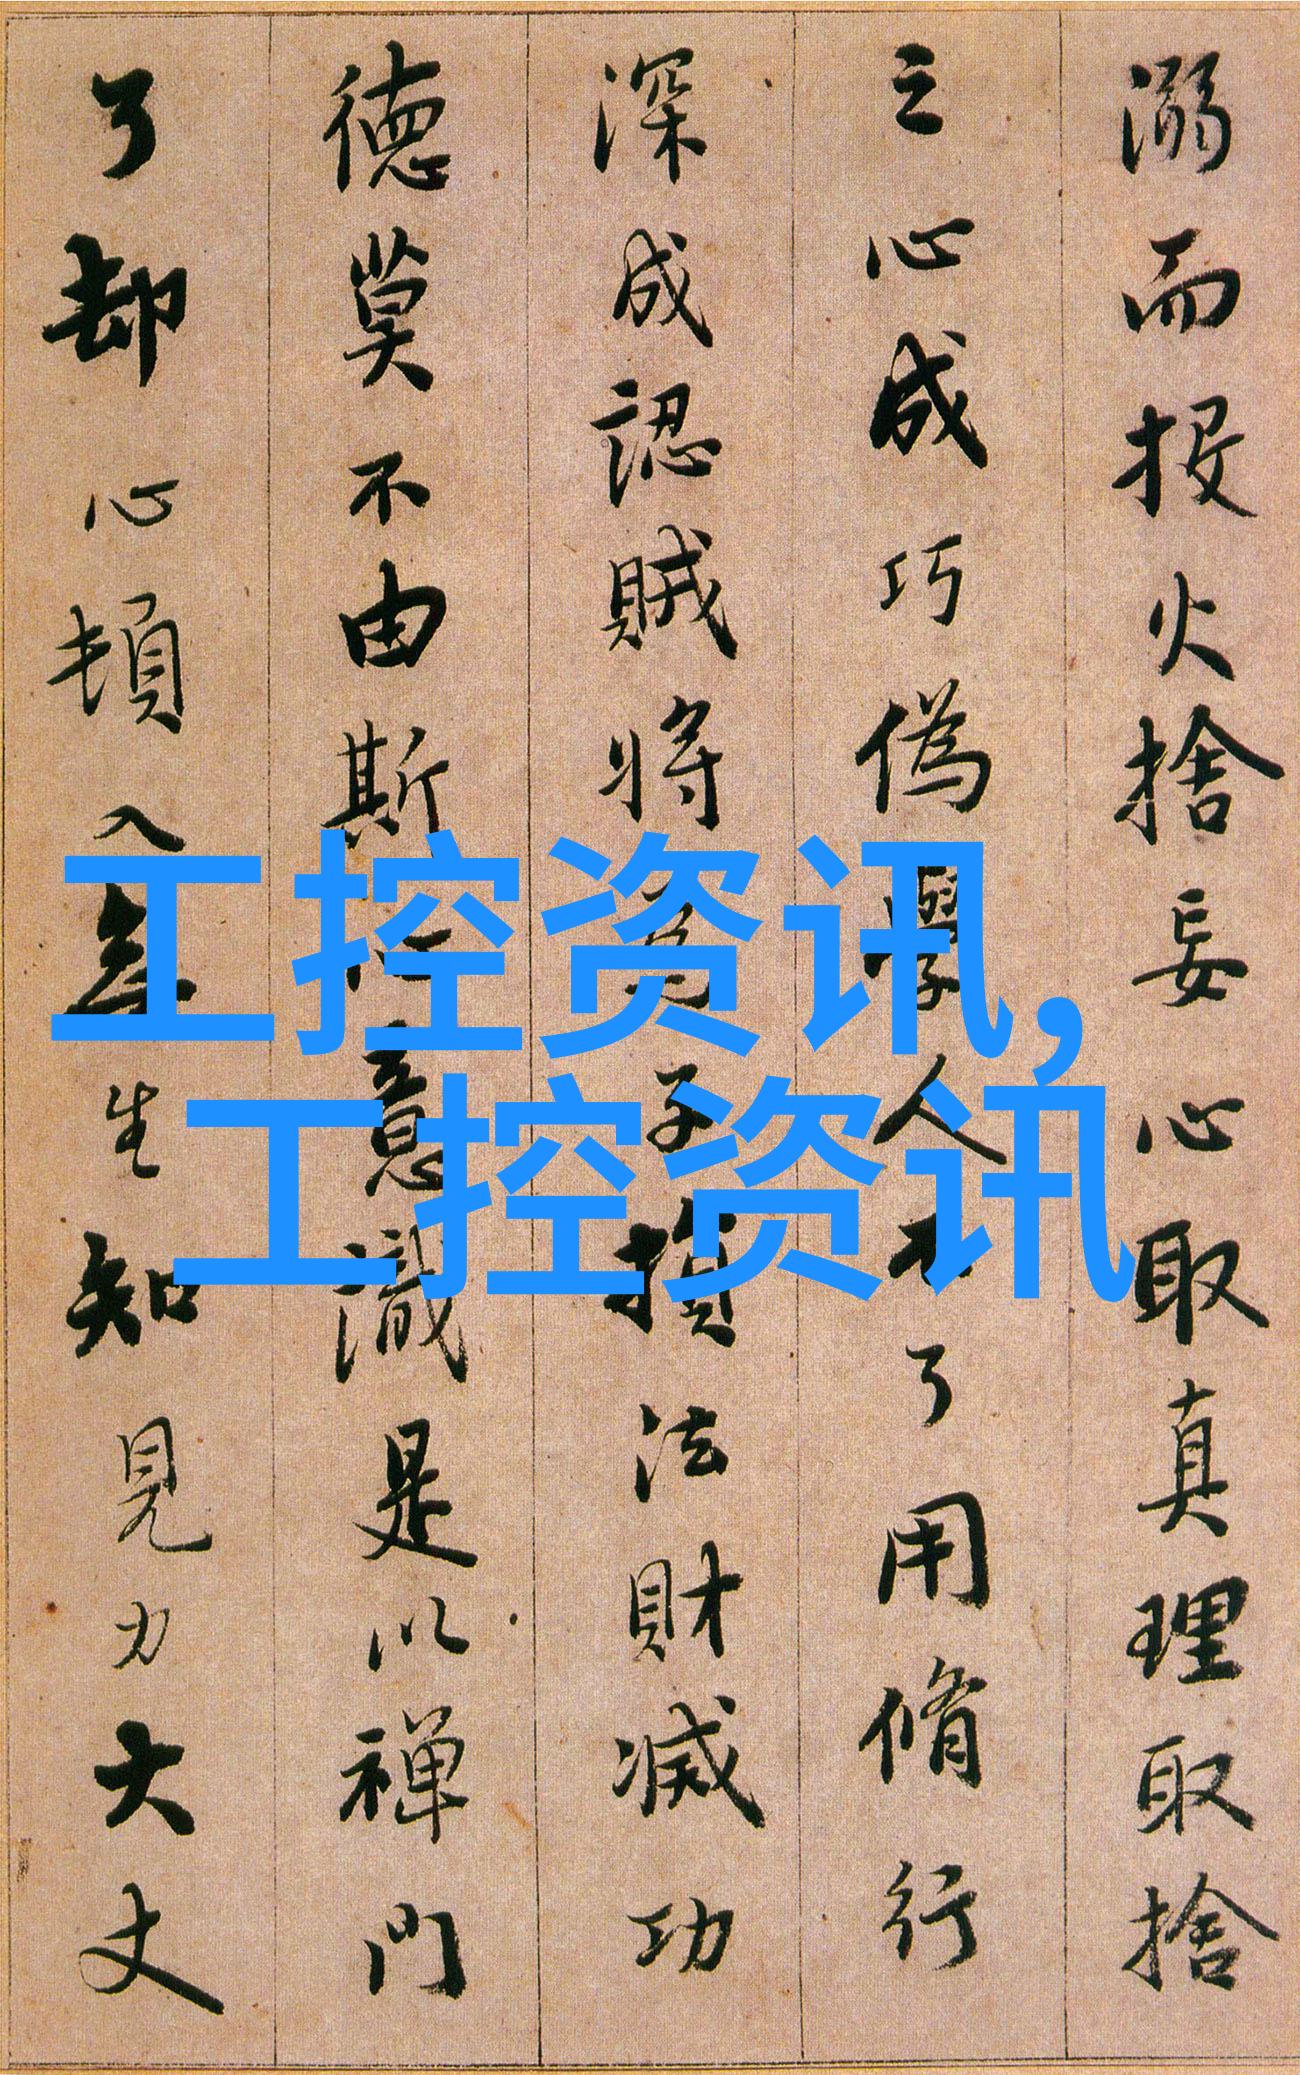 溺而投火捨妄心取真理取捨
之心成巧偽學人不了用脩行
深成認賊將為子損法財滅功
德莫不由斯心意識是以禅門
了却心頓入無生知見力大丈
工控资讯,
工控资讯